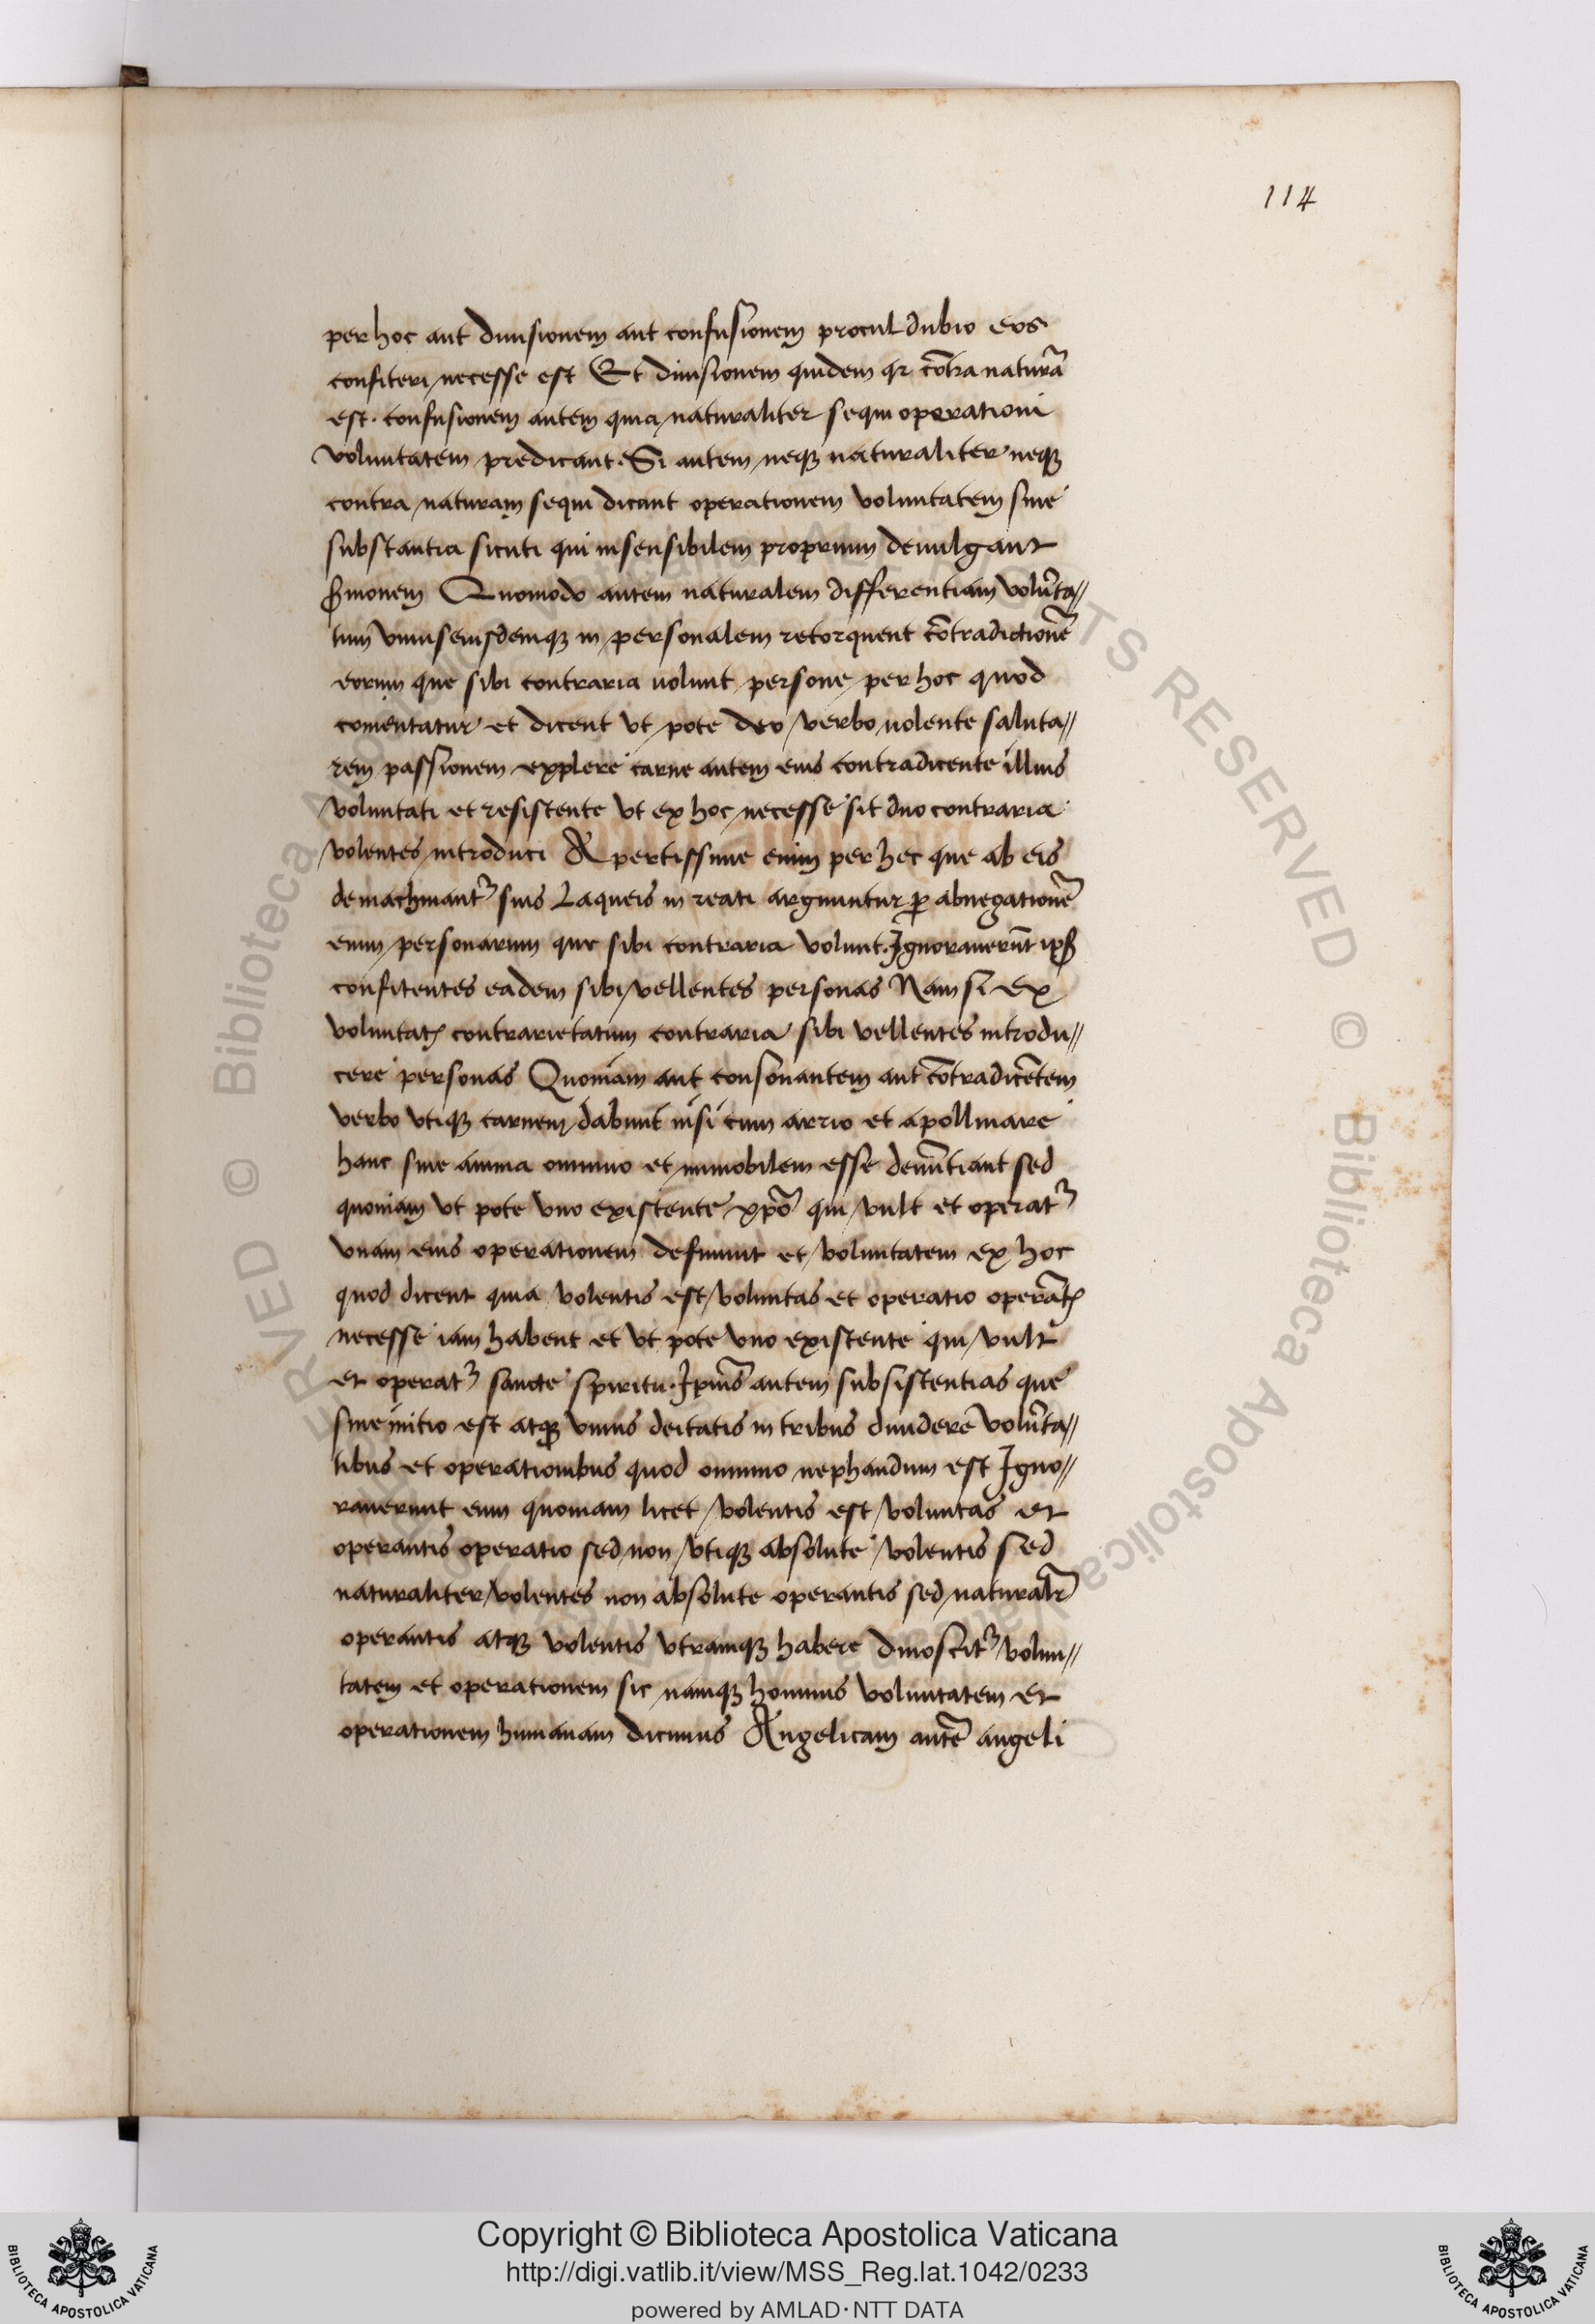 114
per hoc aut diuisionem aut confusionem procul dubio eos
confiteri necesse est Et diuisionem quidem qr cōtra naturā
est. confusionem autem quia naturaliter sequi operationi
voluntatem predicant. Si autem neqꝫ naturaliter neqꝫ
contra naturam sequi dicant operationem voluntatem siue
substantia sicuti qui insensibilem proprium deuulgant
ẜmonem Quomodo autem naturalem differentiam volūta//
tum vniuseiusdemqꝫ in personalem retorquent cōtradictionē
eorum que sibi contraria uolunt persone per hoc quod
comentatur et dicent vt pote deo verbo uolente saluta//
rem passionem explere carne autem eius contradicente illius
voluntati et resistente vt ex hoc necesse sit duo contraria
volentes introduci Apertissime enim per hec que ab eis
demachinantʳ suis Laqueis in reati arguuntur ꝑ abnegationē
enim personarum que sibi contraria volunt. Ignorauerūt ipẜ
confitentes eadem sibi vellentes personas Nam si ex
voluntatꝭ contrarietatum contraria sibi vellentes introdu//
cere personas Quoniam aut consonantem aut cōtradicētem
verbo vtiqꝫ carnem dabunt nisi cum arrio et apollinare
hanc sine anima omnino et immobilem esse denūtiant sed
quoniam vt pote vno existente xp̄o qui vult et operatʳ
vnam eius operationem definiunt et voluntatem ex hoc
quod dicent quia volentis est voluntas et operatio operātꝭ
necesse iam habent et vt pote vno existente qui vult
et operatʳ sancte spiritu. Ipius̄ autem subsistentias que
sine initio est atqꝫ vnius deitatis in tribus diuidere volūta//
tibus et operationibus quod omnino nephandum est Igno//
rauerunt enim quoniam licet volentis est voluntas et
operantis operatio sed non vtiqꝫ absolute volentis sed
naturaliter volentes non absolute operantis sed naturalr̄
operantis atqꝫ volentis vtramqꝫ habere dinoscitʳ volun//
tatem et operationem sic namqꝫ hominis voluntatem et
operationem humanam dicimus Angelicam autē angeli
Copyright © Biblioteca Apostolica Vaticana
http://digi.vatlib.it/view/MSS_Reg.lat.1042/0233
powered by AMLAD·NTT DATA